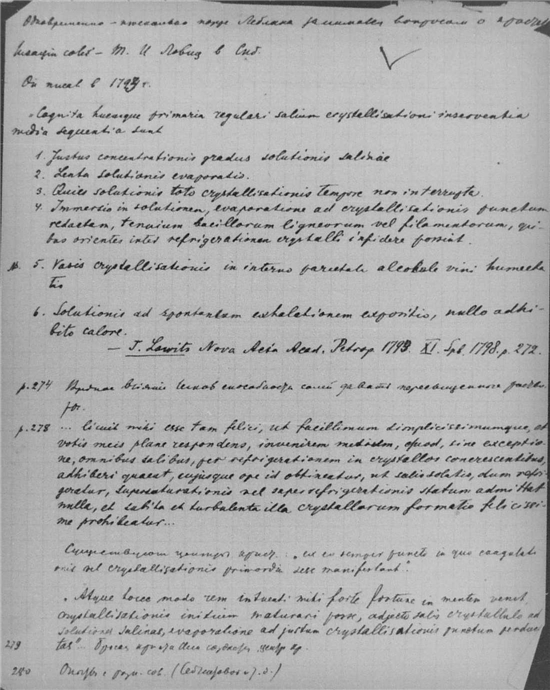 Одновременно – несколько позже Леблана занимался вопросом о кристал
лизации солей – Т. И Ловиц в Спб.
Он писал в 179 г.
"Cognita hucusque primaria regulari salium crystallisationi inserventia
media sequentia sunt
1. Justus concentrationis gradus solutionis salinae
2. Lenta solutionis evaporatio.
3. Quies solutionis toto crystallisationis tempore non interrupta.
4. Immersio in solutionem, evaporatione ad crystallisationis punctum
reductam, tenuium bacillorum ligneorum vel filamentorum, qui-
bus orientes inter refrigerationem crystalli insidere possint.
5. Vasis crystallisationis in interno pariete alcohole vini humecta
tio
6. Solutionis ad spontaneam exhalationem expositio, nullo adhi-
bito calore.
– T. Lowits Nova Acta Acad. Petrop 179 XI. Spb. 1798. p. 272.
p. 274 солей давать пересыщенного раство
ры.
p. 278 ... licuit mihi esse tam felici, ut facillimum simplicissimumque, ac
votis meis plane respondens, invenirem medium, quod, sine exceptio
ne, omnibus salibus, per refrigerationem in crystallos concrescentibus,
adhiberi queat, cujusque ope id obtineatur, ut salis solutio, dum refri-
geratur, supersaturationis vel superrefrigerationis statum admittat
nulla, et subita et turbulenta illa crystallorum formatio felicissi-
me prohibeatur...
Существуют центры крист. "ex eo semper puncto in quo coagulati
onis vel crystallisationis primordia sese manifestant".
"Atque hocce modo rem intuenti mihi forte fortuna in mentem venit,
crystallisationis initium maturari fore, adjecto salis crystallulo ad
solutiones salinas, evaporatione ad justum crystallisationis punctum produc
tas"...
279
280 Опыты с